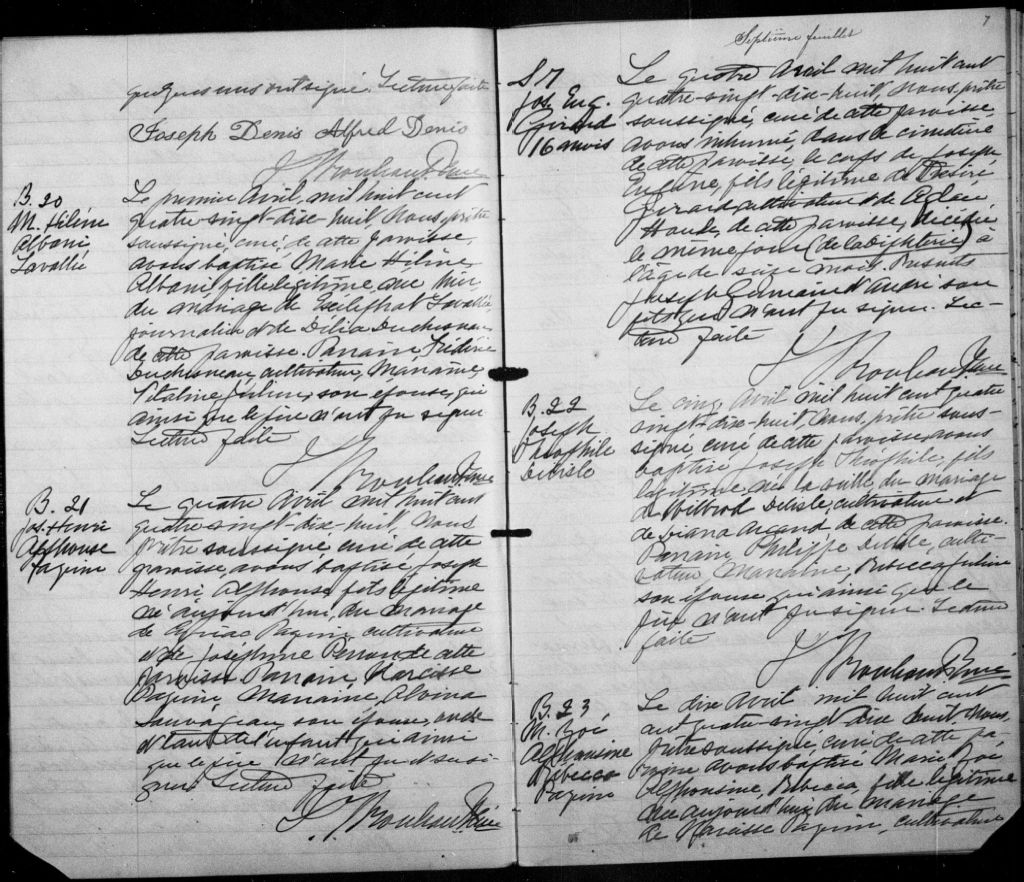 quelques uns ont signé. Lecture faite
Joseph Denis Alfred Denis
J Rouleau Ptre
B. 20
M. Hilène
Albani
Lavallée
Le premier Avril, mil huit cent
quatre-vingt-dix-huit, Nous, prêtre
soussigné, curé, de cette paroisse,
avons baptisé Marie Hilène
Albani fille légitime, née hier
du mariage de Lavallée
journalier et de Délia Duchesneau
de cette paroisse. Parrain, Frédéric
Duchesneau, cultivateur, Marraine,
son épouse, qui
ainsi que le père n'ont pu signer
Lecture faite
J Rouleau Ptre
B. 21
Jos. Henri
Alphonse
Paquin
Le quatre Avril mil huit cent
quatre-vingt-dix-huit, Nous
prêtre soussigné, curé de cette
paroisse, avons baptisé Joseph
Henri, Alphonse, fils légitime
né aujourd'hui, du mariage
de Cyriac Paquin, cultivateur
et de Joséphine Perron de cette
paroisse Parrain, Narcisse
Paquin, Marraine, Alvina
Sauvageau, son épouse, oncle
et tante de l'enfant qui ainsi
que le père n'ont pu si-
gner Lecture faite
J. Rouleau Ptre
7
Septième feuillet
S 17
Jos. Eug.
Girard
16 mois
Le quatre Avril mil huit cent
quatre-vingt-dix-huit, Nous, prêtre
soussigné, curé de cette paroisse,
avons inhumé, dans le cimetière
de cette paroisse, le corps de Joseph
Eugène, fils légitime de Désiré
Girard cultivateur et de
Houde, de cette paroisse, décédé
le même jour (de la diphterie) à
l'âge de seize mois. Présents
Joseph Germain et André son
fils qui n'ont pu signer. Lec-
ture faite
J Rouleau Ptre
B. 22
Joseph
Théophile
Delisle
Le cinq Avril mil huit cent quatre
vingt-dix-huit, Nous, prêtre sous-
signé, curé de cette paroisse, avons
baptisé Joseph Théophile, fils
légitime, né la veille du mariage
de Wilbrod Delisle, cultivateur et
de Diana Arcand de cette paroisse.
Parrain Philippe Delisle, culti-
vateur, Marraine, Rébecca
son épouse, qui ainsi que le
père n'ont pu signer. Lecture
faite
J Rouleau Ptre
B. 23
M. Zoé
Alphonsine
Rébecca
Paquin
Le dix Avril mil huit cent
quatre-vingt dix huit Nous,
Prêtre soussigné, curé de cette pa
roisse avons baptisé Marie Zoé
Alphonsine, Rébecca, fille légitime
née aujourd'hui, du mariage
de Narcisse Paquin, cultivateur